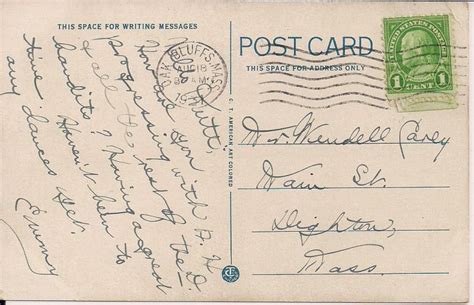 THIS SPACE FOR WRITING MESSAGES
Hi Chutt!
How are you
progressing with A. H.
& all the rest of the D.
bandits? Having a great
time. Haven't been to
any dances yet.
Emmy
C. T. AMERICAN ART COLORED
OAK BLUFFS, MASS.
AUG 18
8 AM
POST CARD
THIS SPACE FOR ADDRESS ONLY
UNITED STATES POSTAGE
1 CENT 1
Mr. Wendell Carey
Main St.
Dighton,
Mass.